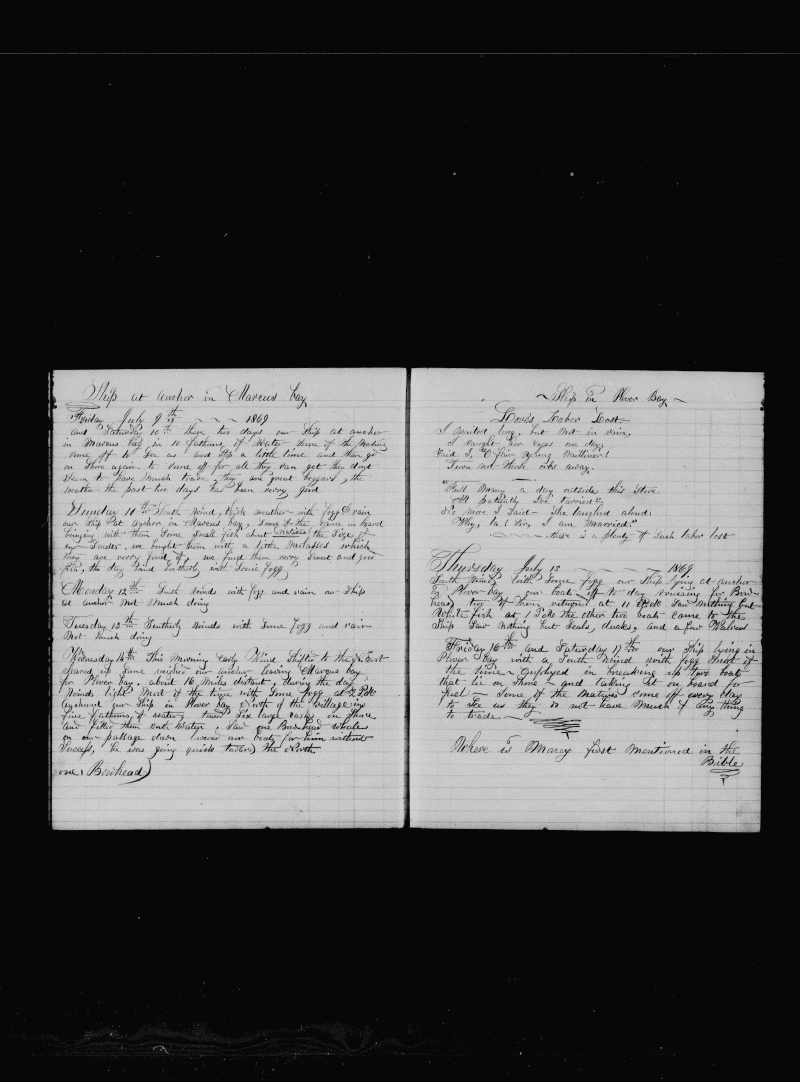 Ship at anchor in Marcus bay
Friday July 9th 1869
and Saturday 10th these two days our Ship at anchor
in Marcus bay in 10 fathoms of Water Some of the Natives
come off to See us and Stop a little time and then go
on Shore again to come off for all they can get they dont
Seem to have Much trade, they are great beggars, the
weather the past two days has been verry good
Sunday 11th South Wind, thick weather with fogg & rain
our Ship at anchor in Marcus bay, Some of the Came on board
bringing with them Some Small fish about the Size of
our Smelts, we bought them with a little Molasses which
they are verry fond of, we find them verry Sweet and good
fish, the day Wind Sutherly with Some Fogg
Monday 12th South Winds with fogg and rain our Ship
at anchor Not Much doing
Tuesday 13th Southerly Winds with Some Fogg and rain
Not Much doing
Wednesday 14th This Morning early Wind Shifted to the N. East
cleared up Some weighed our anchor leaving Marcus bay
for Plover bay, about 16 Miles distant, during the day
Winds light Most of the time with Some fogg at 2 PM
anchored our Ship in Plover bay North of the village in
five fathoms of water, towed Six large casks on Shore
and filled them with Water, Saw one Bowhead whale
on our passage down lowered our boats for him without
Success, he was going quick to the North
one Bowhead)
~ Ship in Plover Bay ~
Love's Labor Lost.
I waited long, but not in vain,
I caught her eyes one day,
Said I, "O fair young Milliner!
Turn not those orbs away.
"Full Many a day outside this Store
All patiently I've tarried",
No more I Said - She laughed aloud:
"Why, la! Sir, I am Married"
there is a plenty of Such labor lost
Thursday July 15 1869
South Winds with Some fogg our Ship lying at anchor
in Plover bay our boats off to day cruising for Bow-
heads two of them returned at 11 Saw nothing but
White fish at 1 the other two boats came to the
Ship Saw Nothing but Seals, ducks, and a few Walrus
Friday 16th and Saturday 17th our Ship lying in
Plover Bay with a South Wind with fogg Most of
the time employed in breaking up two boats
that lie on Shore and taking it on board for
fuel - Some of the Natives come off every day
to See us they do not have Much of any thing
to trade
Where is Marcy first Mentioned in the
Bible